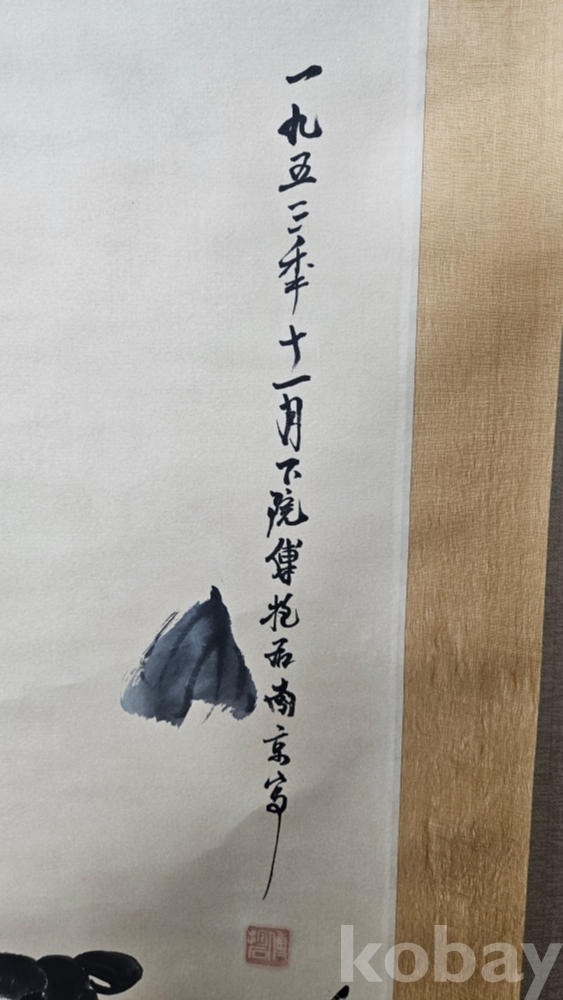 一九五三年十一月下浣傅抱石南京写
kobay